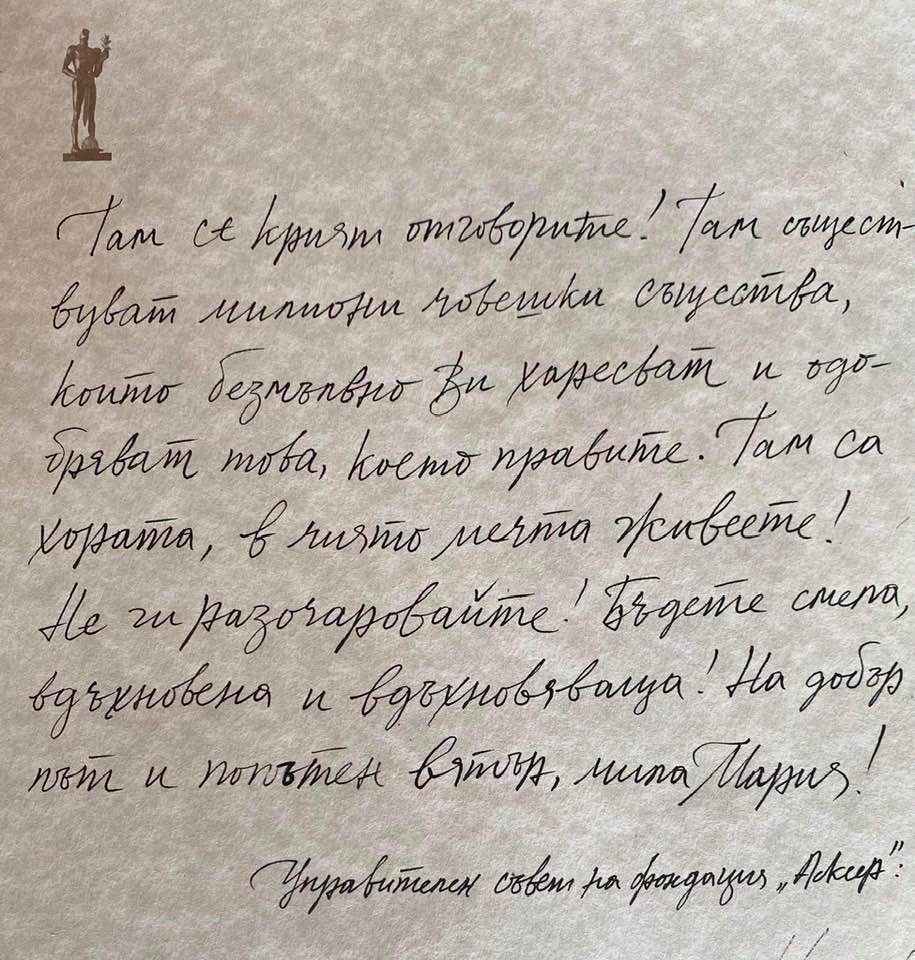 Там се крият отговорите! Там същест-
вуват милиони човешки същества,
които безмълвно Ви харесват и одо-
бряват това, което правите. Там са
хората, в чиято мечта живеете!
Не ги разочаровайте! Бъдете смела,
вдъхновена и вдъхновяваща! На добър
път и попътен вятър, мила Мария!
Управителен съвет на фондация „Аскеер":